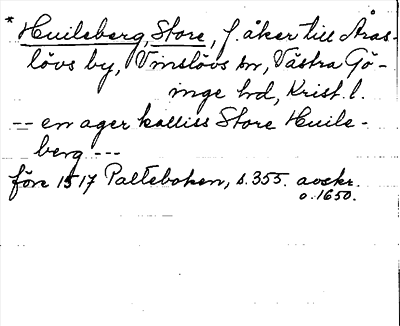 * Huileberg, Store, f. åker till Åras-
lövs by, Vinslövs sn, Västra Gö-
inge hd, Krist. l.
-- en ager kalliss Store Huile-
berg ---
före 1517 Palteboken, s. 355. avskr.
o. 1650.